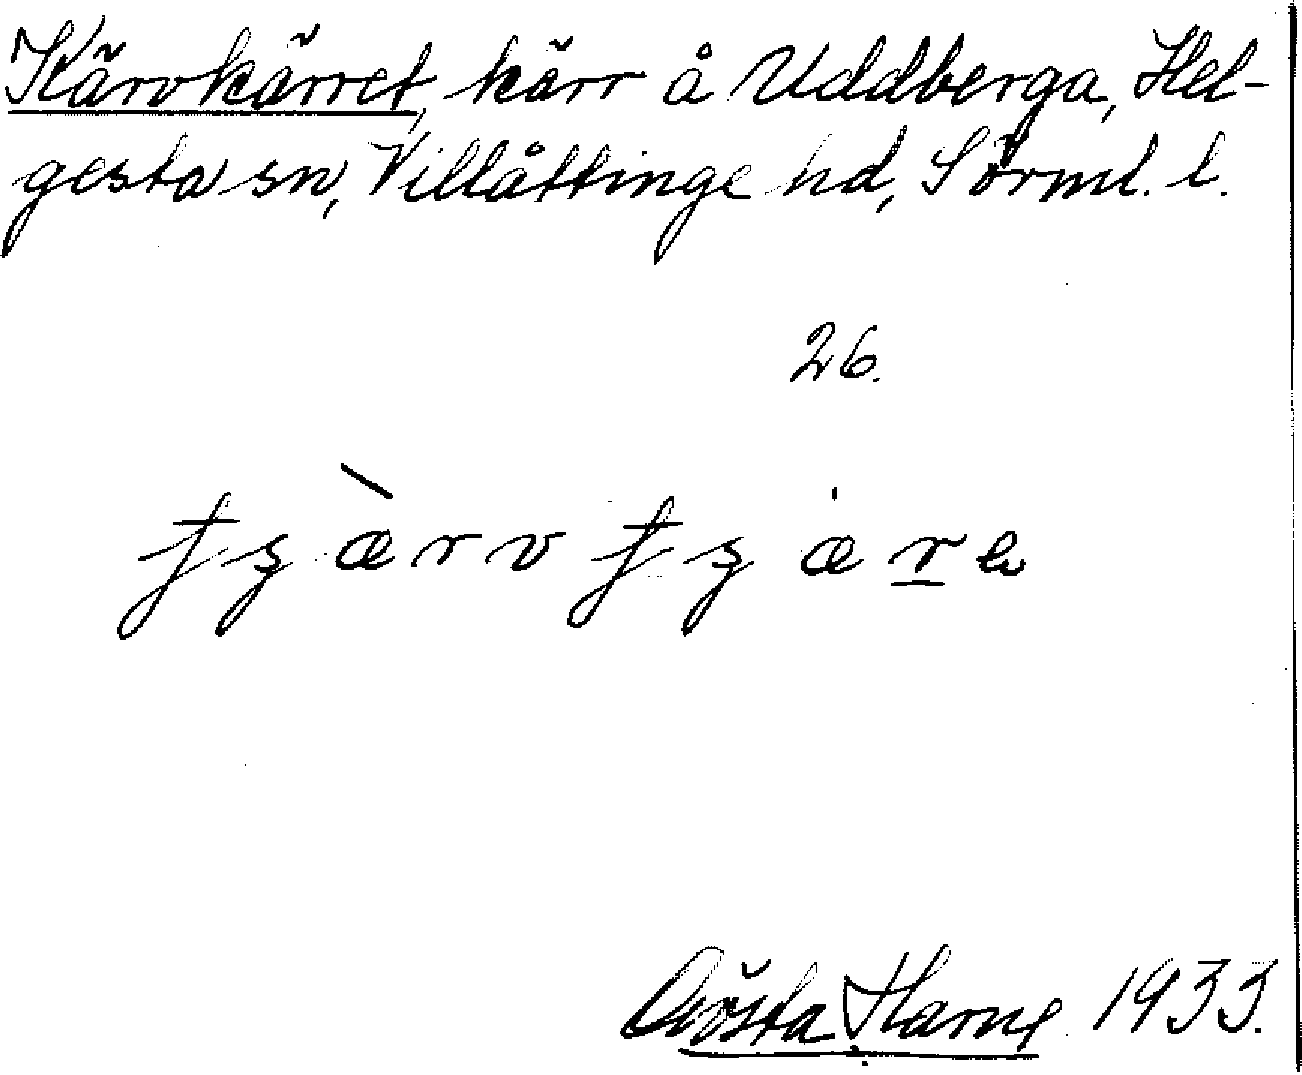 Kärvkärret, kärr å Uddberga, Hel-
gesta sn, Villåttinge hd, Sörml. l.
26.
Gösta Harne 1933.